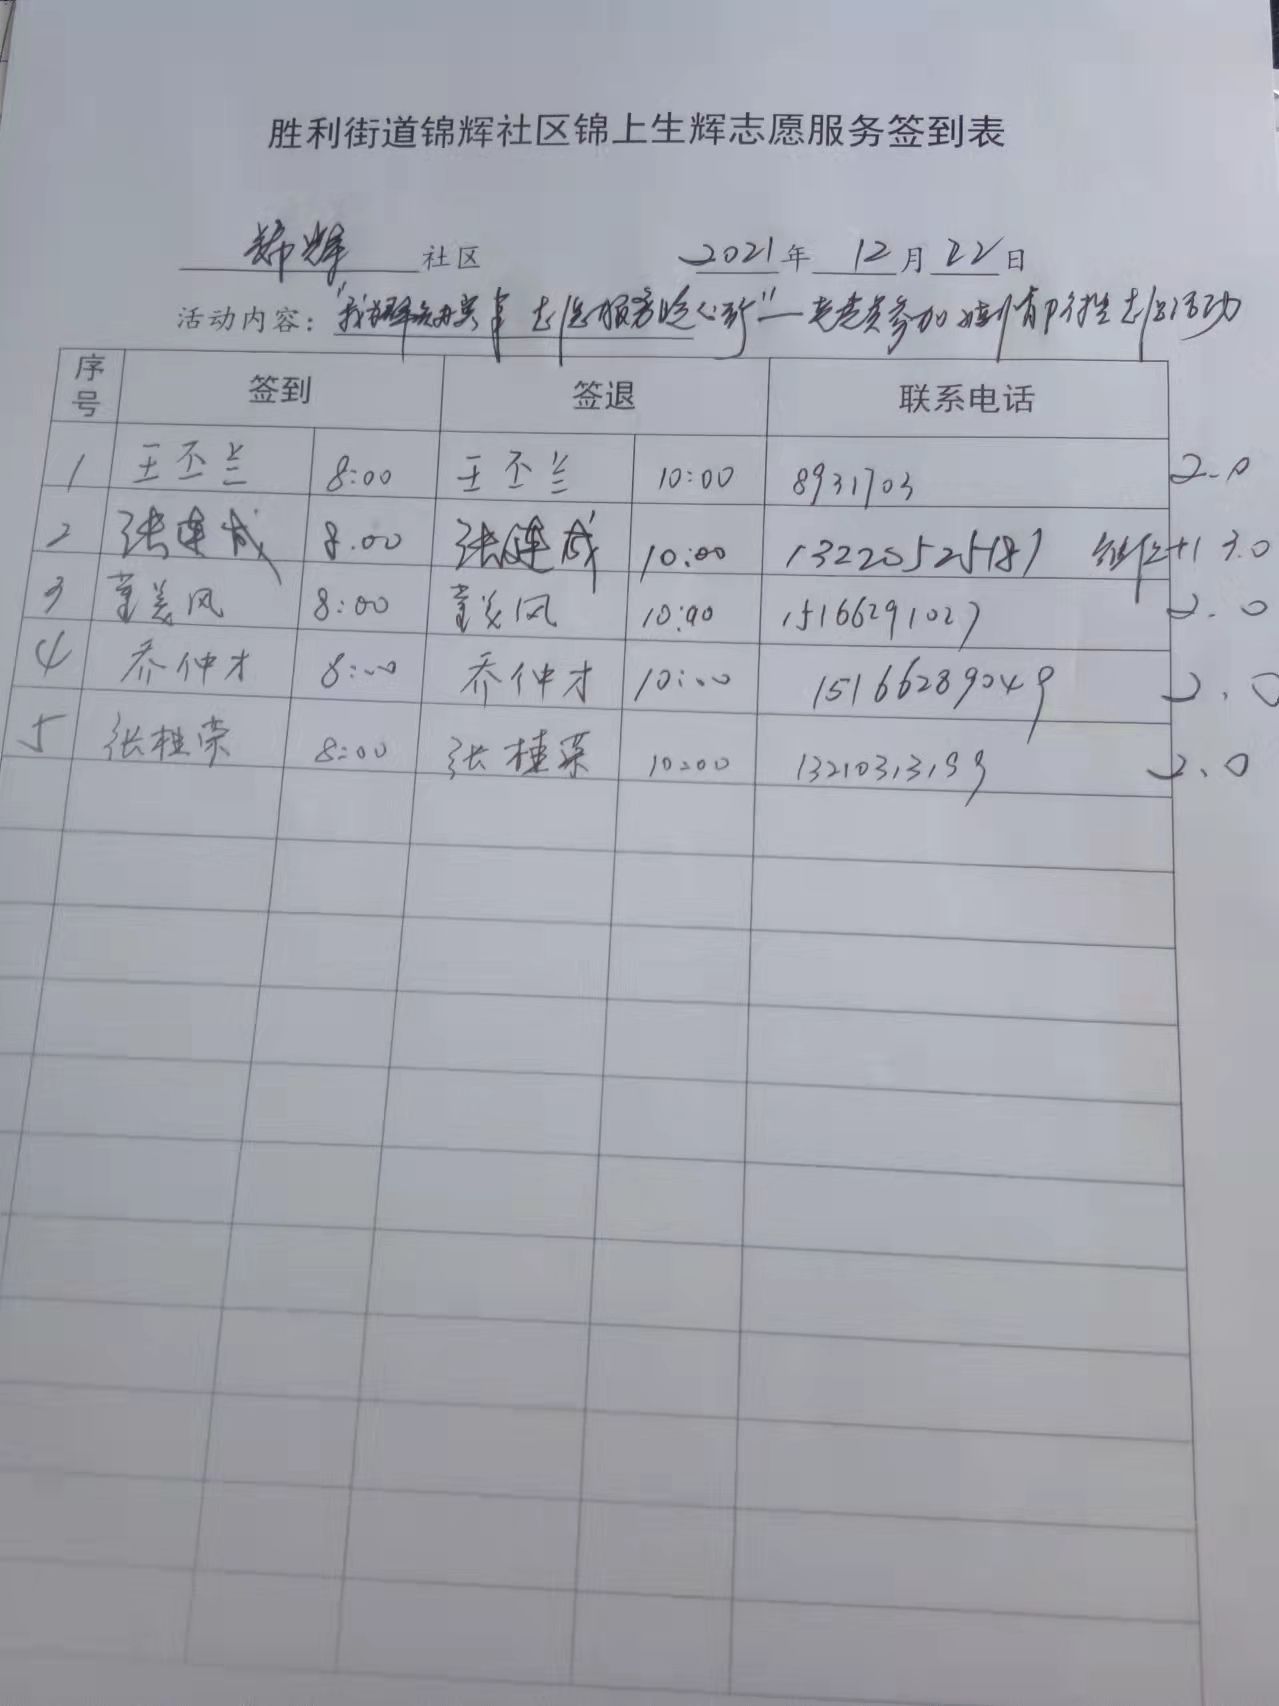 胜利街道锦辉社区锦上生辉志愿服务签到表
锦辉 社区 2021年 12月 22日
活动内容："我为群众办实事 志愿服务暖心行"一老党员参加 志愿活动
序号 签到 签退 联系电话
1 王丕兰 8:00 王丕兰 10:00 8931703 2.0
2 张连成 8.00 张连成 10:00 13220525187 +1 3.0
3 董美风 8:00 董美风 10:00 15166291027 2.0
4 乔仲才 8:00 乔仲才 10:00 15166289049 2.0
5 张桂荣 8:00 张桂荣 10:00 13210313199 2.0